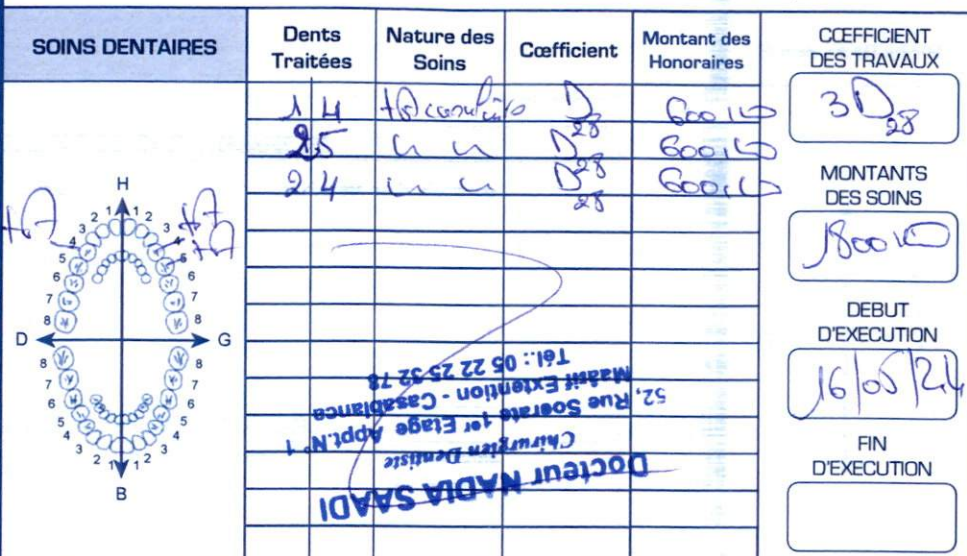 SOINS DENTAIRES
Dents Traitées
Nature des Soins
Cœfficient
Montant des Honoraires
14 D28 600,00
25 D28 600,00
24 D28 600,00
CŒFFICIENT
DES TRAVAUX
3D28
MONTANTS
DES SOINS
1800,00
DEBUT
D'EXECUTION
16/05/24
FIN
D'EXECUTION
H
1 1
2 2
3 3
4 4
5 5
6 6
7 7
8 8
D G
8 8
7 7
6 6
5 5
4 4
3 3
2 2
1 1
B
Docteur NADIA SAADI
Chirurgien Dentiste
52, Rue Socrate 1er Etage Appt.N° 1
Maârif Extention - Casablanca
Tél.: 05 22 25 32 78